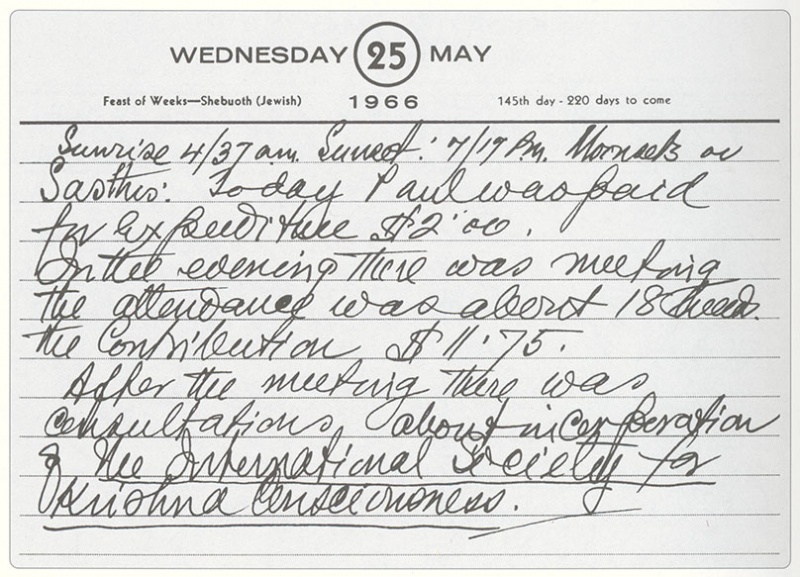 WEDNESDAY 25 MAY
Feast of Weeks—Shebuoth (Jewish) 1966 145th day - 220 days to come
Sunrise 4/37 am. Sunset: 7/17 Pm.
Sasthis: Today Paul was paid
for expenditure $2"00.
In the evening there was meeting
the attendance was about 18
the contribution $11.75.
After the meeting there was
consultations about incorporation
of the International Society for
Krishna Consciousness.